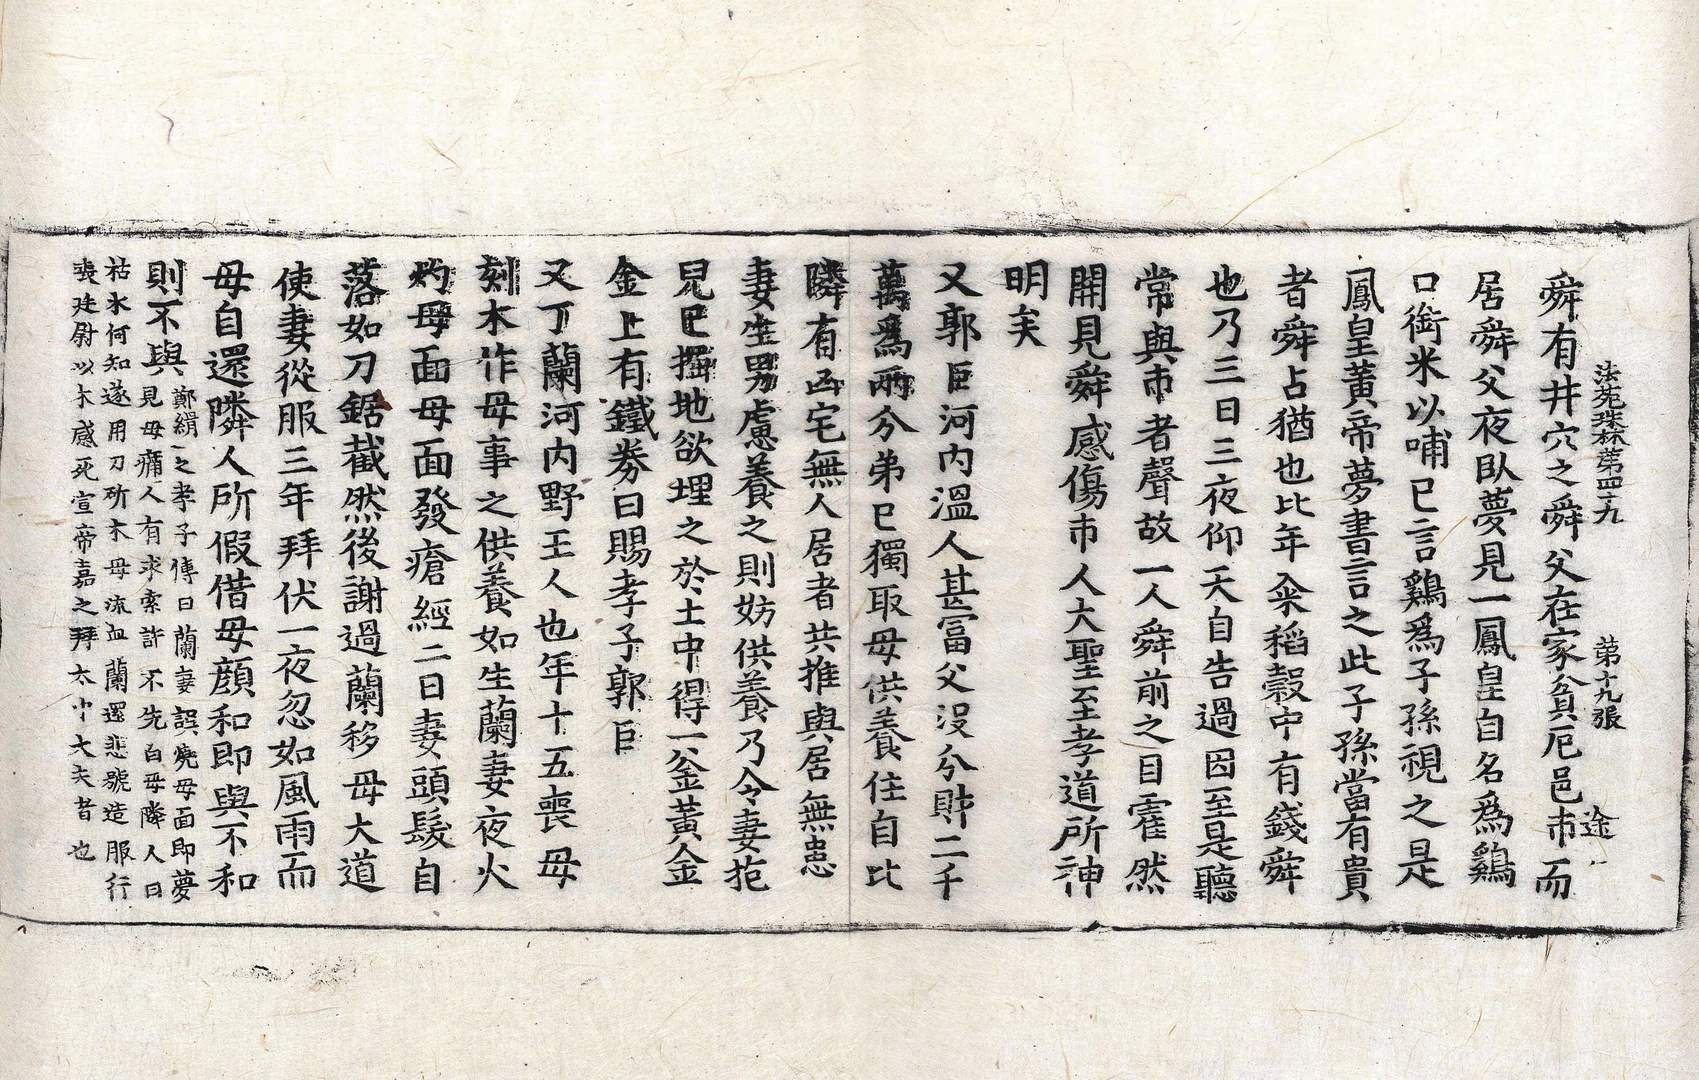 法苑珠林第四十九　第十九張　途
舜有井穴之舜父在家貧厄邑市而
居舜父夜臥夢見一鳳皇自名爲鷄
口銜米以哺已言鷄爲子孫視之是
鳳皇黃帝夢書言之此子孫當有貴
者舜占猶也比年籴稻糓中有錢舜
也乃三日三夜仰天自告過因至是聽
常與市者聲故一人舜前之目霍然
開見舜感傷市人大聖至孝道所神
明矣
又郭巨河內溫人甚富父没分財二千
萬爲兩分弟已獨取母供養住自比
隣有凶宅無人居者共推與居無患
妻生男慮養之則妨供養乃令妻抱
兒已掘地欲埋之於土中得一釜黃金
金上有鐵券曰賜孝子郭巨
又丁蘭河內野王人也年十五喪母
刻木作母事之供養如生蘭妻夜火
灼母面母面發瘡經二日妻頭髮自
落如刀鋸截然後謝過蘭移母大道
使妻從服三年拜伏一夜忽如風雨而
母自還隣人所假借母顔和即與不和
則不與鄭緝之孝子傳曰蘭妻誤燒母面即夢
見母痛人有求索許不先白母隣人曰
枯木何知遂用刀斫木母流血蘭還悲號造服行
喪廷尉以木感死宣帝嘉之拜太中大夫者也